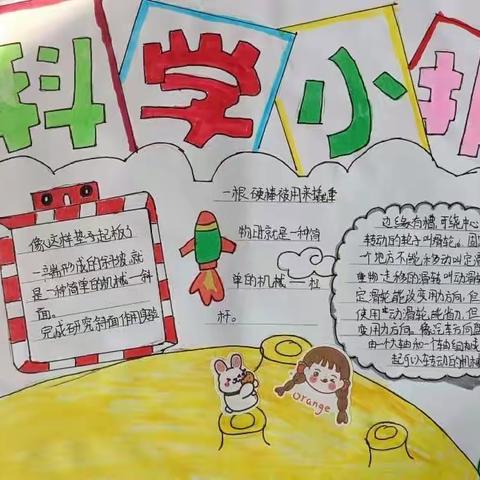 科学小
像这样垫起板子
一端形成的斜坡,就
是一种简单的机械一斜
面。
完成研究斜面作用实验
一根硬棒被用来撬重
物时就是一种简
单的机械一杠
杆。
边缘有槽,可绕中
转动的轮子叫滑轮。固
个地方不能移动叫定滑
重物一起移动的滑轮叫动滑
定滑轮能改变用力方向,但
使用动滑轮能省力,但
变用力方向。像汽车方向盘
由一个大轴和一个轴组成
起可以转动的机械
orange